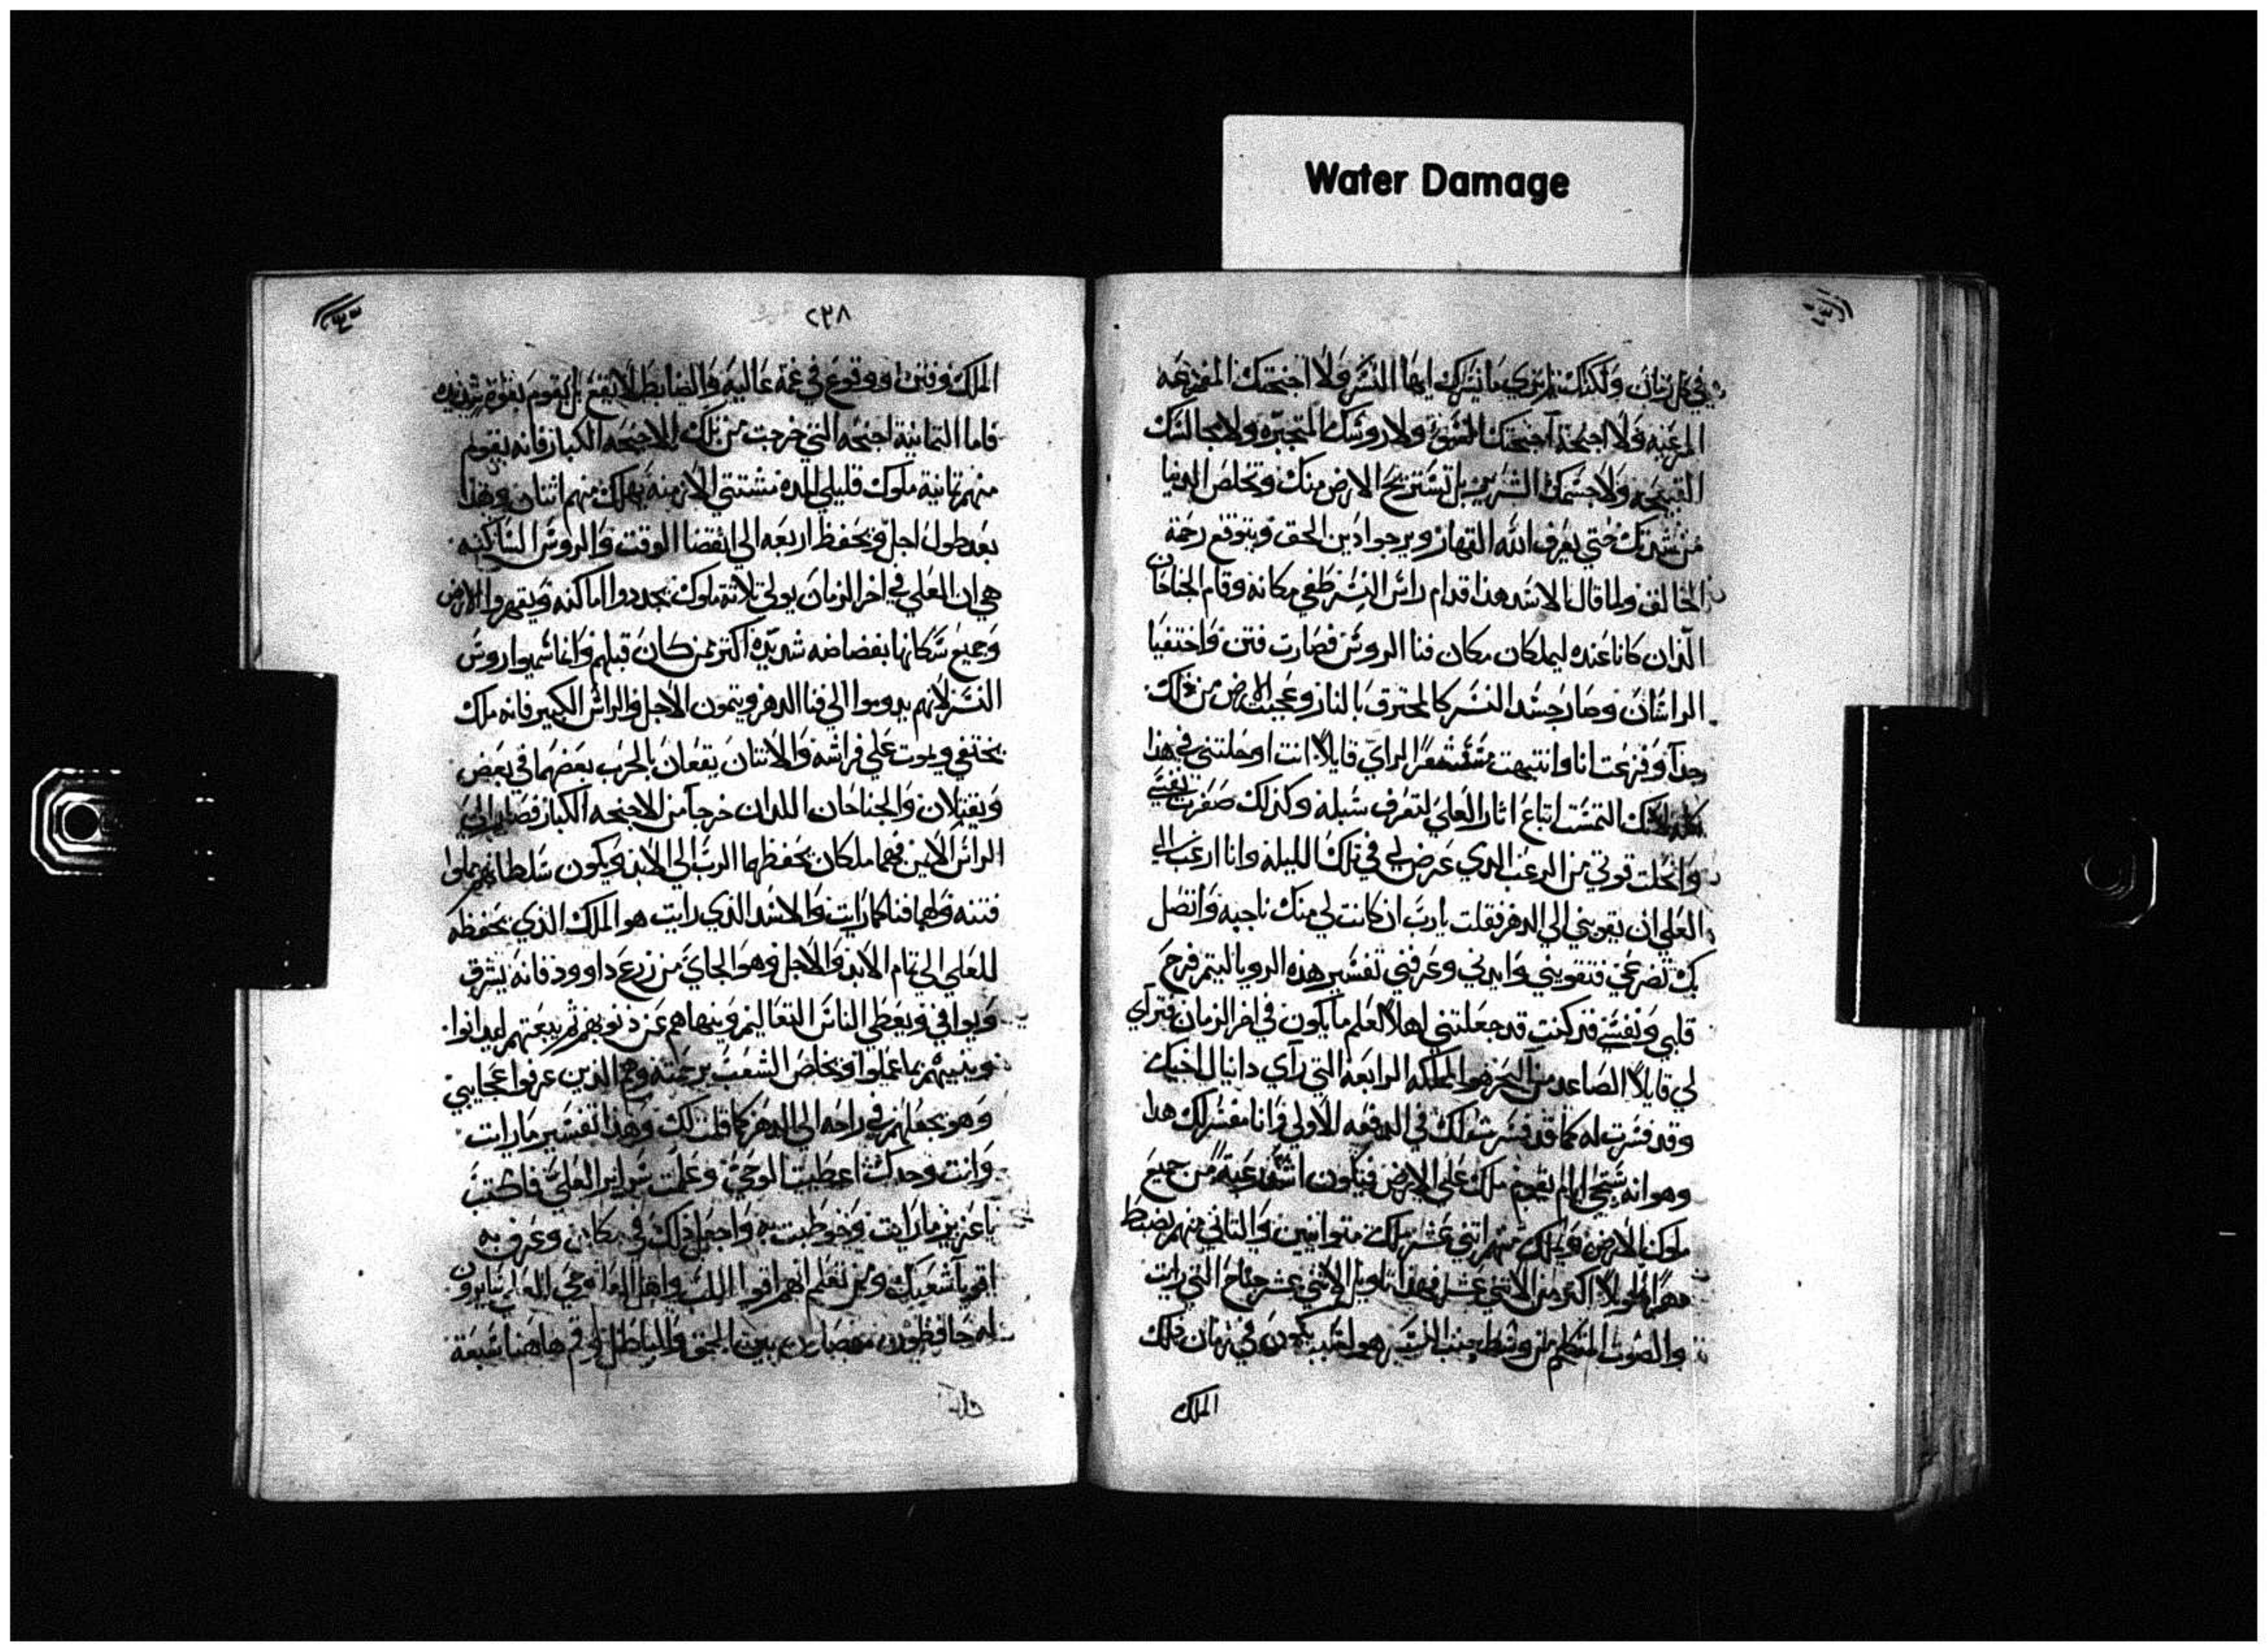 Water Damage
في كل زمان ولكنك ايها النسر ولا اجنحتك المفزعه
المرعبه ولا اجنحة اجنحتك السو ولا روسك المتجبره ولا مخالبك
القبيحه ولا جسمك الشرير بل تستريح الارض منك وتخلص الدنيا
من شدتك حتي يعرف الله القهار ويرجوا دين الحق ويتوقع رحمة
الخالق ولما قال الاسد هذا قدام راس النسر طفي مكانه وقام الجناحان
الذان كانا عنده ليملكان مكان فنا الروس فصارت فتن واختفيا
الراسان وصار جسد النسر كالمحترق بالنار وعجبت الارض من ذلك
جدا وفزعت انا وانتبهت قايلا انت اوحلتني في هذا
التمست اتباع اثار العلي لتعرف سبله وكذلك صغرت نفسي
وانحلت قوتي من الرعب الدي عرض لي في تلك الليله وانا ارغب الي
العلي ان يقويني الي الدهر فقلت يا رب ان كانت لي منك ناجيه واتصل
بك تضرعي فتقويني وايدني وعرفني تفسير هذه الرويا ليتم فرح
قلبي ونفسي قد كنت قد جعلتني اهلا لعلم ما يكون في اخر الزمان فتراي
لي قايلا الصاعد من البحر هو المملكه الرابعه التي راي دانيال اخيك
وقد فسرت له كما قد فسر لك في الدفعه الاولي وانا مفسر لك هدا
وهو انه ستجي ايام يقوم ملك علي الارض فيكون اشد رعبة من جميع
ملوك الارض ويملك منهم اثني عشر ملك متوانيين والثاني منهم يضبط
طويلا اكتر من الاثني عشر فهذا تاويل الاثني عشر جناح التي رايت
والصوت المتكلم من وسط جنب النسر هو يكون في زمان ذلك
الملك
٢٣٨
الملك وفتن ووقوع في غمه عاليه والضابط لا يقع بل يقوم بقوة شديده
فاما الثمانية اجنحه التي خرجت من تلك الاجنحه الكبار فانه يقوم
منهم ثمانية ملوك قليلي المده مشتتي الازمنه يهلك منهم اثنان وهذا
بعد طول اجل ويحفظ اربعه الي انقضا الوقت والروس الساكنه
هي ان العلي في اخر الزمان يولي ثلاثة ملوك يجددوا اماكنه ويقهروا الارض
وجميع سكانها بفضاضه شديده اكتر من كان قبلهم وانما سميوا روس
النسر لانهم يدوموا الي فنا الدهر ويتمون الاجل والراس الكبير فانه ملك
يختفي ويموت علي فراشه والاثنان يقعان بالحرب بعضهما في بعض
ويقتلان والجناحان اللدان خرجا من الاجنحه الكبار فصارا الي
الراس الايمن فهما ملكان يحفظهما الرب الي الابد ويكون سلطانهم مملوا
فتنه ولهما فنا كما رايت والاسد الذي رايت هو الملك الذي يحفظه
للعلي الي تمام الابد والاجل وهو الجاي من زرع داوود فانه يشرق
ويوافي ويعطي الناس التعاليم وينهاهم عن ذنوبهم ثم يبعتهم ليدانوا
وينبيهم بما عملوا ويخلص الشعب برحمته وهم الدين عرفوا عجايبي
وهو يجعلهم في راحه الي الدهر كما قلت لك وهذا تفسير ما رايت
وانت وحدك اعطيت الوحي وعلمت سراير العلي فاكتب
يا عزير ما رايت وخوطبت به واجعل ذلك في مكان وعرف به
اقويا شعبك ومن تعلم انهم اقويا اللب
له حافظون بين الحق والباطل اقم هاهنا سبعة